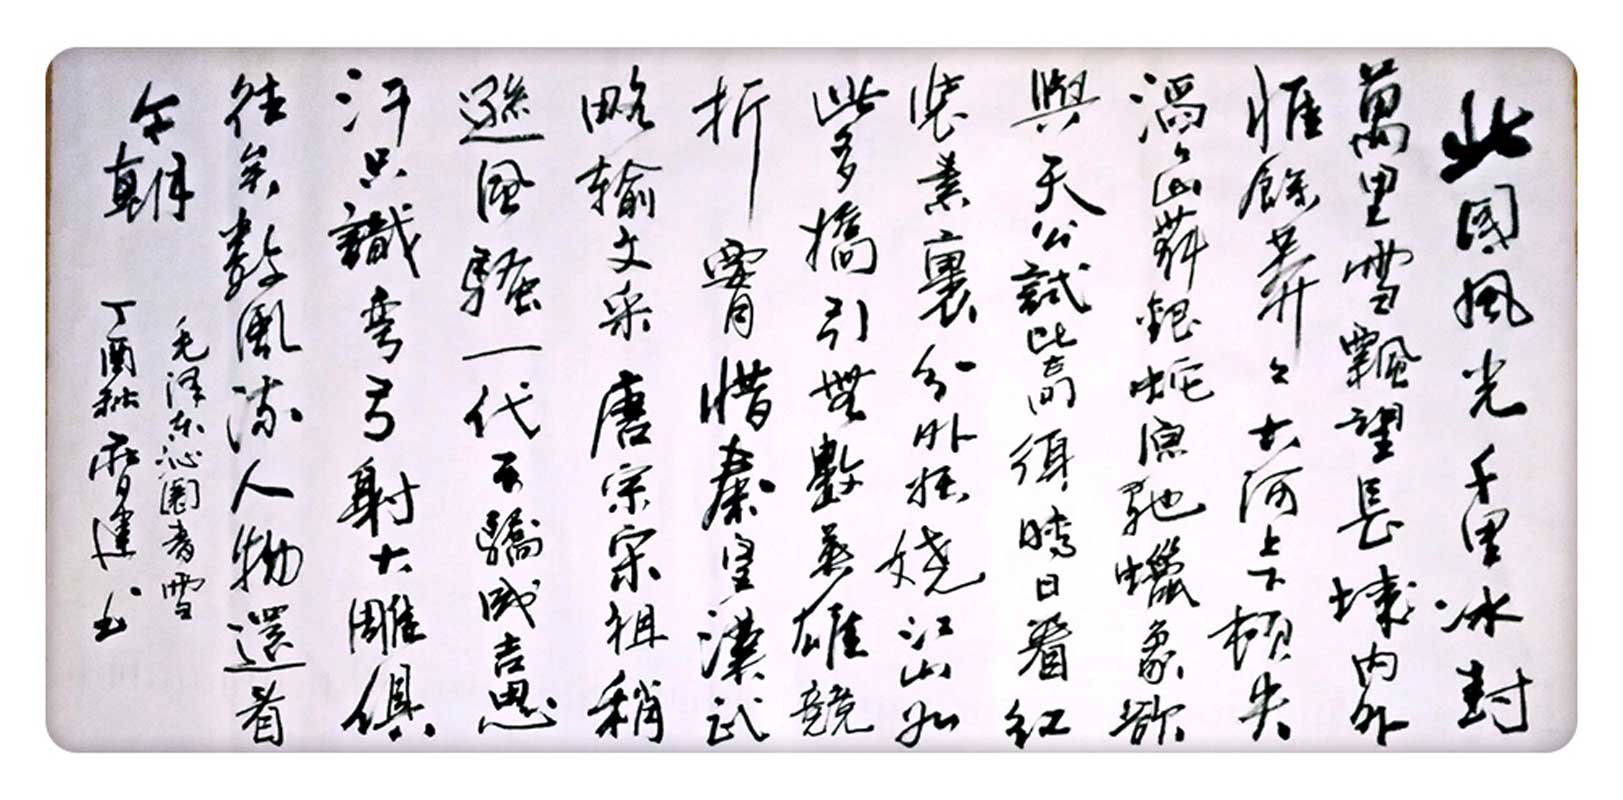 北國風光千里冰封
萬里雪飄望長城内外
惟餘莽々大河上下頓失
滔々山舞銀蛇原馳蠟象欲
與天公試比高須晴日看紅
裝素裹分外妖嬈江山如
此多嬌引無數英雄競
折腰惜秦皇漢武
略輸文采唐宗宋祖稍
遜風騷一代天驕成吉思
汗只識彎弓射大雕俱
往矣數風流人物還看
今朝
毛泽东沁園春雪
丁酉秋建书